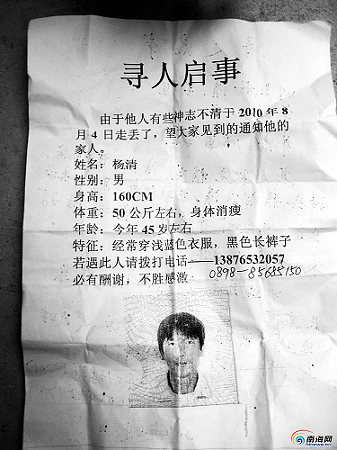 寻人启事
由于他人有些神志不清于2010年8
月4日走丢了，望大家见到的通知他的
家人。
姓名：杨清
性别：男
身高：160CM
体重：50公斤左右，身体消瘦
年龄：今年45岁左右
特征：经常穿浅蓝色衣服，黑色长裤子
若遇此人请拨打电话——13876532057
必有酬谢，不胜感激 0898-85635150
南海网